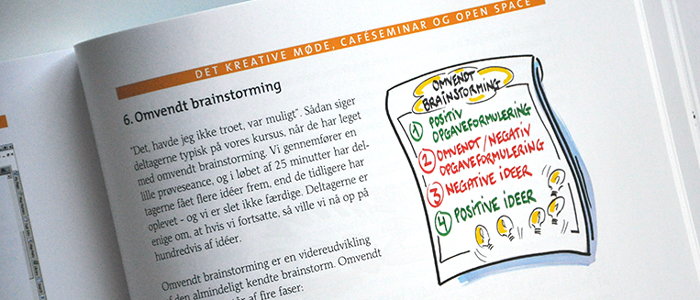 DET KREATIVE MØDE, CAFÉSEMINAR OG OPEN SPACE
6. Omvendt brainstorming
"Det, havde jeg ikke troet, var muligt". Sådan siger
deltagerne typisk på vores kursus, når de har leget
med omvendt brainstorming. Vi gennemfører en
lille prøveseance, og i løbet af 25 minutter har del-
tagerne fået flere idéer frem, end de tidligere har
oplevet - og vi er slet ikke færdige. Deltagerne er
enige om, at hvis vi fortsatte, så ville vi nå op på
hundredvis af idéer.
Omvendt brainstorming er en videreudvikling
af den almindeligt kendte brainstorm. Omvendt
af fire faser:
OMVENDT
BRAINSTORMING
1 POSITIV
OPGAVEFORMULERING
2 OMVENDT/NEGATIV
OPGAVEFORMULERING
3 NEGATIVE IDEER
4 POSITIVE IDEER